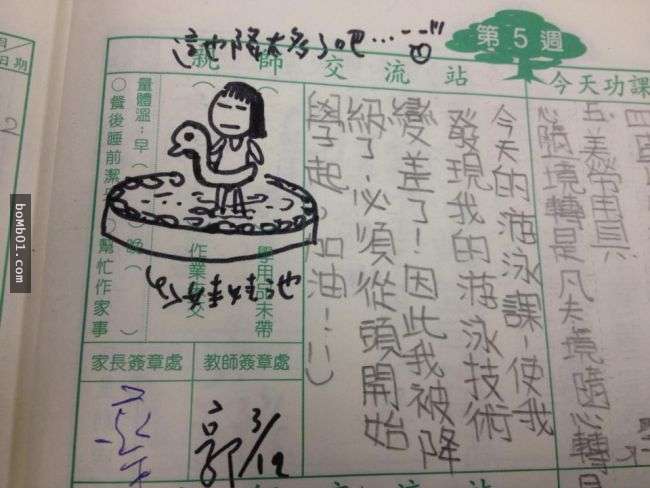 這也降太多了吧...
第5週
親師交流站
今天功課
日期
五.美勞用具
心隨境轉是凡夫境隨心轉
今天的游泳課,使我
發現我的游泳技術
變差了!因此我被降
級了,必須從頭開始
學起。加油!:)
學用品未帶
作業
量體溫:早( 晚( )
○餐後睡前潔 ○幫忙作家事
娃娃池
家長簽章處
教師簽章處
郭 3/12
bomb01.com